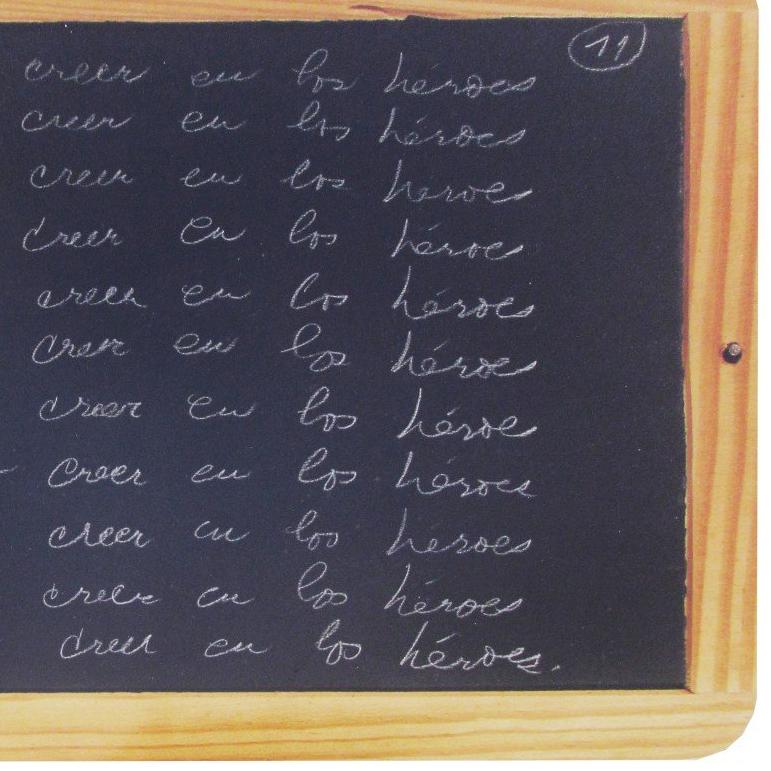 11
creer en los héroes
creer en los héroes
creer en los héroes
creer en los héroes
creer en los héroes
creer en los héroes
creer en los héroes
creer en los héroes
creer en los héroes
creer en los héroes
creer en los héroes.